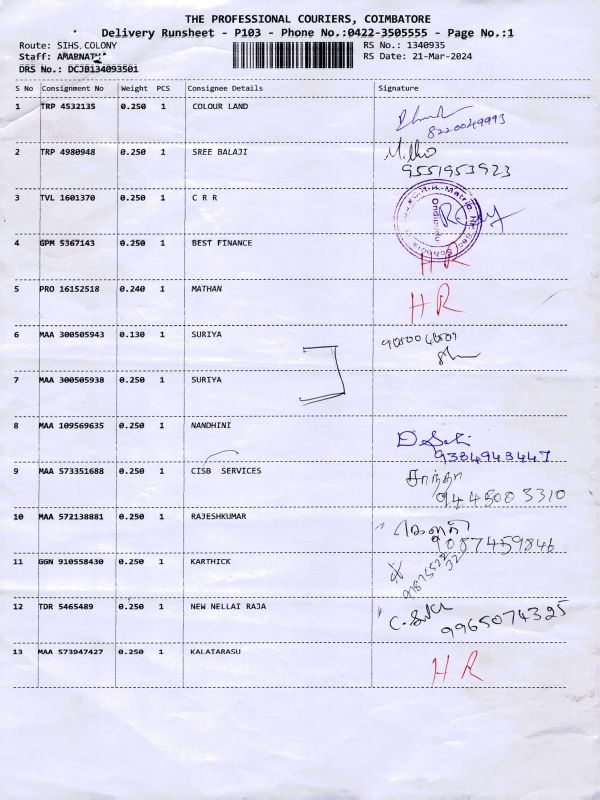 THE PROFESSIONAL COURIERS, COIMBATORE
Delivery Runsheet - P103 - Phone No.:0422-3505555 - Page No.:1
Route: SIHS COLONY
RS No.: 1340935
Staff: AMARNATH
RS Date: 21-Mar-2024
DRS No.: DCJB134093501
S No Consignment No Weight PCS Consignee Details Signature
1 TRP 4532135 0.250 1 COLOUR LAND
8220049993
2 TRP 4980948 0.250 1 SREE BALAJI
9551953923
3 TVL 1601370 0.250 1 C R R
4 GPM 5367143 0.250 1 BEST FINANCE
HR
5 PRO 16152518 0.240 1 MATHAN
HR
6 MAA 300505943 0.130 1 SURIYA
7 MAA 300505938 0.250 1 SURIYA
8 MAA 109569635 0.250 1 NANDHINI
9384943447
9 MAA 573351688 0.250 1 CISB SERVICES
சாந்தா
9444503310
10 MAA 572138881 0.250 1 RAJESHKUMAR
9087459846
11 GGN 910558430 0.250 1 KARTHICK
12 TDR 5465489 0.250 1 NEW NELLAI RAJA
9965074325
13 MAA 573947427 0.250 1 KALAIARASU
HR